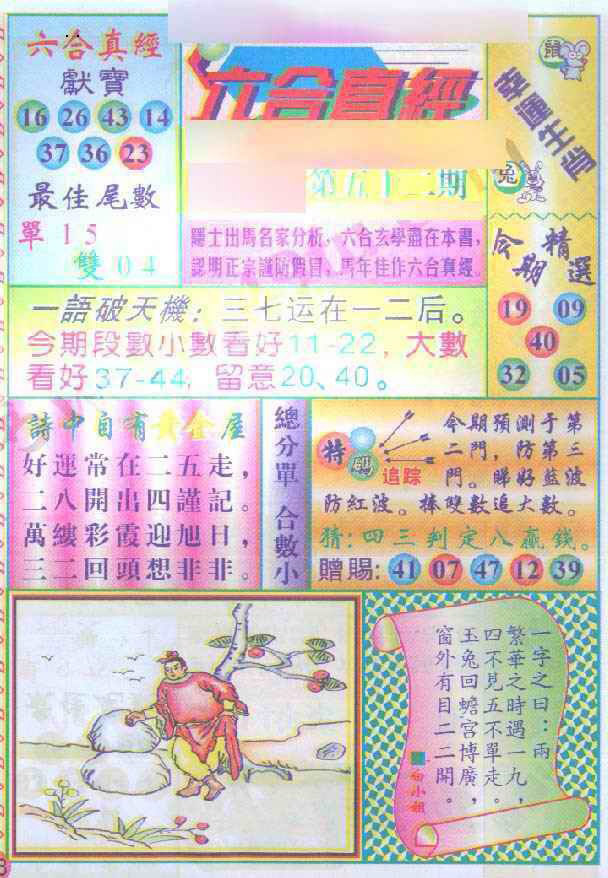 六合真經
獻寶
16 26 43 14
37 36 23
最佳尾數
單 1 5
雙 0 4
六合真經
第五十二期
隱士出馬名家分析，六合玄學盡在本書，
認明正宗謹防假冒，馬年佳作六合真經。
鼠
幸運生肖
兔
今期精選
19 09
40
32 05
一語破天機：三七运在一二后。
今期段數小數看好11-22，大數
看好37-44，留意20、40。
詩中自有黃金屋
好運常在二五走，
二八開出四謹記。
萬縷彩霞迎旭日，
三二回頭想非非。
總分單 合數小
特碼
追踪
今期預測于第
二門，防第三
門。睇好藍波
防紅波。捧雙數追大數。
猜：四三判定八贏錢。
贈賜：41 07 47 12 39
一字之曰：兩
繁華之時遇一九，
四不見五不單走。
玉兔回蟾宮博廣，
窗外有目二二開。
白小姐